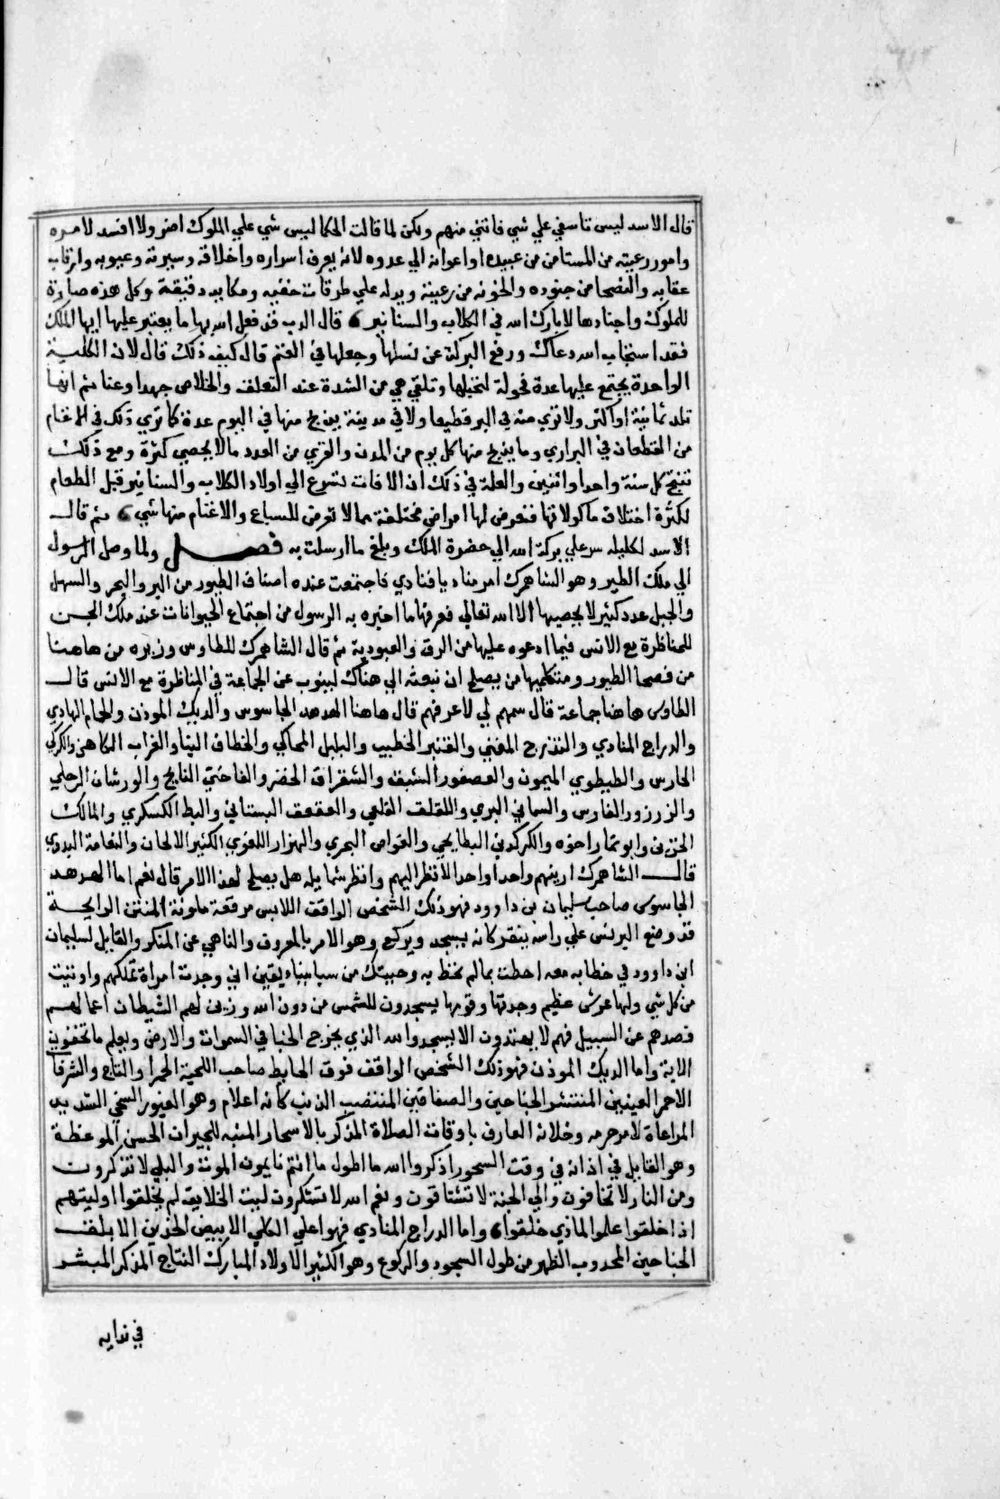 قال الاسد ليس تاسفي علي شي فاتني منهم ولكن لما قالت الحكما ليس شي علي الملوك اضر ولا افسد لامره
وامور رعيته من المستامن من عبيده او اعوانه الي عدوه لانه يعرف اسراره واخلاقه وسيرته وعيوبه واوقات
غفلاته والنصحا من جنوده والخونه من رعيته ويدله علي طرقات خفيه ومكايد دقيقة وكل هذه ضارة
للملوك واجنادها لا بارك الله في الكلاب والسنانير قال الدب قد فعل الله بها ما يعتبر عليها ايها الملك
فقد استجاب الله دعاك ورفع البركة عن نسلها وجعلها في الغنم قال كيف ذلك قال لان الكلبة
الواحدة يجتمع عليها عدة فحولة لتحبلها وتلقي هي من الشدة عند التعلق والخلاص جهدا وعنا ثم انها
تلد ثمانية او اكثر ولا تري منه في البر قطيعا ولا في مدينة يذبح منها في اليوم عدة كما تري ذلك في الاغنام
من القطعان في البراري وما يذبح منها كل يوم من المدن والقري من العدد مالا يحصي كثرة ومع ذلك
تنتج كل سنة واحدا واثنين والعلة في ذلك ان الافات تسرع الي اولاد الكلاب والسنانير قبل الطعام
لكثرة اختلاف ماكولاتها فتعرض لها امراض مختلفة مما لا تعرض للسباع والاغنام منها شي ثم قال
الاسد لكليله سر علي بركة الله الي حضرة الملك وبلغ ما ارسلت به فصل ولما وصل الرسول
الي ملك الطير وهو الشاهمرك امر مناديا فنادي فاجتمعت عنده اصناف الطيور من البر والبحر والسهل
والجبل عدد كثير لا يحصيها الا الله تعالي فعرفها ما اخبره به الرسول من اجتماع الحيوانات عند ملك الجن
للمناظرة مع الانس فيما ادعوه عليها من الرق والعبودية ثم قال الشاهمرك للطاوس وزيره من هاهنا
من فصحا الطيور ومتكلميها من يصلح ان نبعثه الي هناك لينوب عن الجماعة في المناظرة مع الانس قال
الطاوس هاهنا جماعة قال سمهم لي لاعرفهم قال هاهنا الهدهد الجاسوس والديك الموذن والحمام الهادي
والدراج المنادي والتذرج المغني والقنبر الخطيب والبلبل المحاكي والخطاف البنا والغراب الكاهن والكركي
الحارس والطيطوي الميمون والعصفور الشبق والشقراق الخضر والفاختي النايح والورشان الرحلي
والزرزور الفارس والسماني البري واللقلق القلعي والعقعق البستاني والبط الكسكري والمالك
الحزين وابو تمارا اخوه والكركدي البطايحي والغواص البحري والهزار اللغوي الكثير الالحان والنعامة البدوي
قال الشاهمرك ارينهم واحدا واحدا لانظر اليهم وانظر شمايله هل يصلح لهذا الامر قال نعم اما الهدهد
الجاسوس صاحب سليمان بن داوود فهو ذلك الشخص الواقف اللابس مرقعة ملونة المنتن الرايحة
قد وضع البرنس علي راسه ينقر كانه يسجد ويركع وهو الامر بالمعروف والناهي عن المنكر والقايل لسليمان
ابن داوود في خطابه معه احطت بمالم تحط به وجيتك من سبا بنبا يقين اني وجدت امراة تملكهم واوتيت
من كل شي ولها عرش عظيم وجدتها وقومها يسجدون للشمس من دون الله وزين لهم الشيطان اعمالهم
فصدهم عن السبيل فهم لا يهتدون الا يسجدوا لله الذي يخرج الخبا في السموات والارض ويعلم ما تخفون
الاية واما الديك الموذن فهو ذلك الشخص الواقف فوق الحايط صاحب اللحية الحمرا والتاج والشرفا
الاحمر العينين المنتشر الجناحين والصفاقين المنتصب الذنب كانه اعلام وهو الغيور السخي الشديد
المراعاة لامر حرمه وخلانه العارف باوقات الصلاة المذكر بالاسحار المنبه للجيران الحسن الموعظة
وهو القايل في اذانه في وقت السحور اذكروا الله ما اطول ما انتم نايمون الموت والبلي لا تذكرون
ومن النار لا تخافون والي الجنة لا تشتاقون ونعم الله لا تشكرون ليت الخلايق لم يخلقوا وليتهم
اذا خلقوا علموا لماذي خلقوا واما الدراج المنادي فهو اعلي التل الابيض الخدين الابلق
الجناحين المحدوب الظهر من طول السجود والركوع وهو الكثير الاولاد المبارك النتاج المذكر المبشر
في ندايه